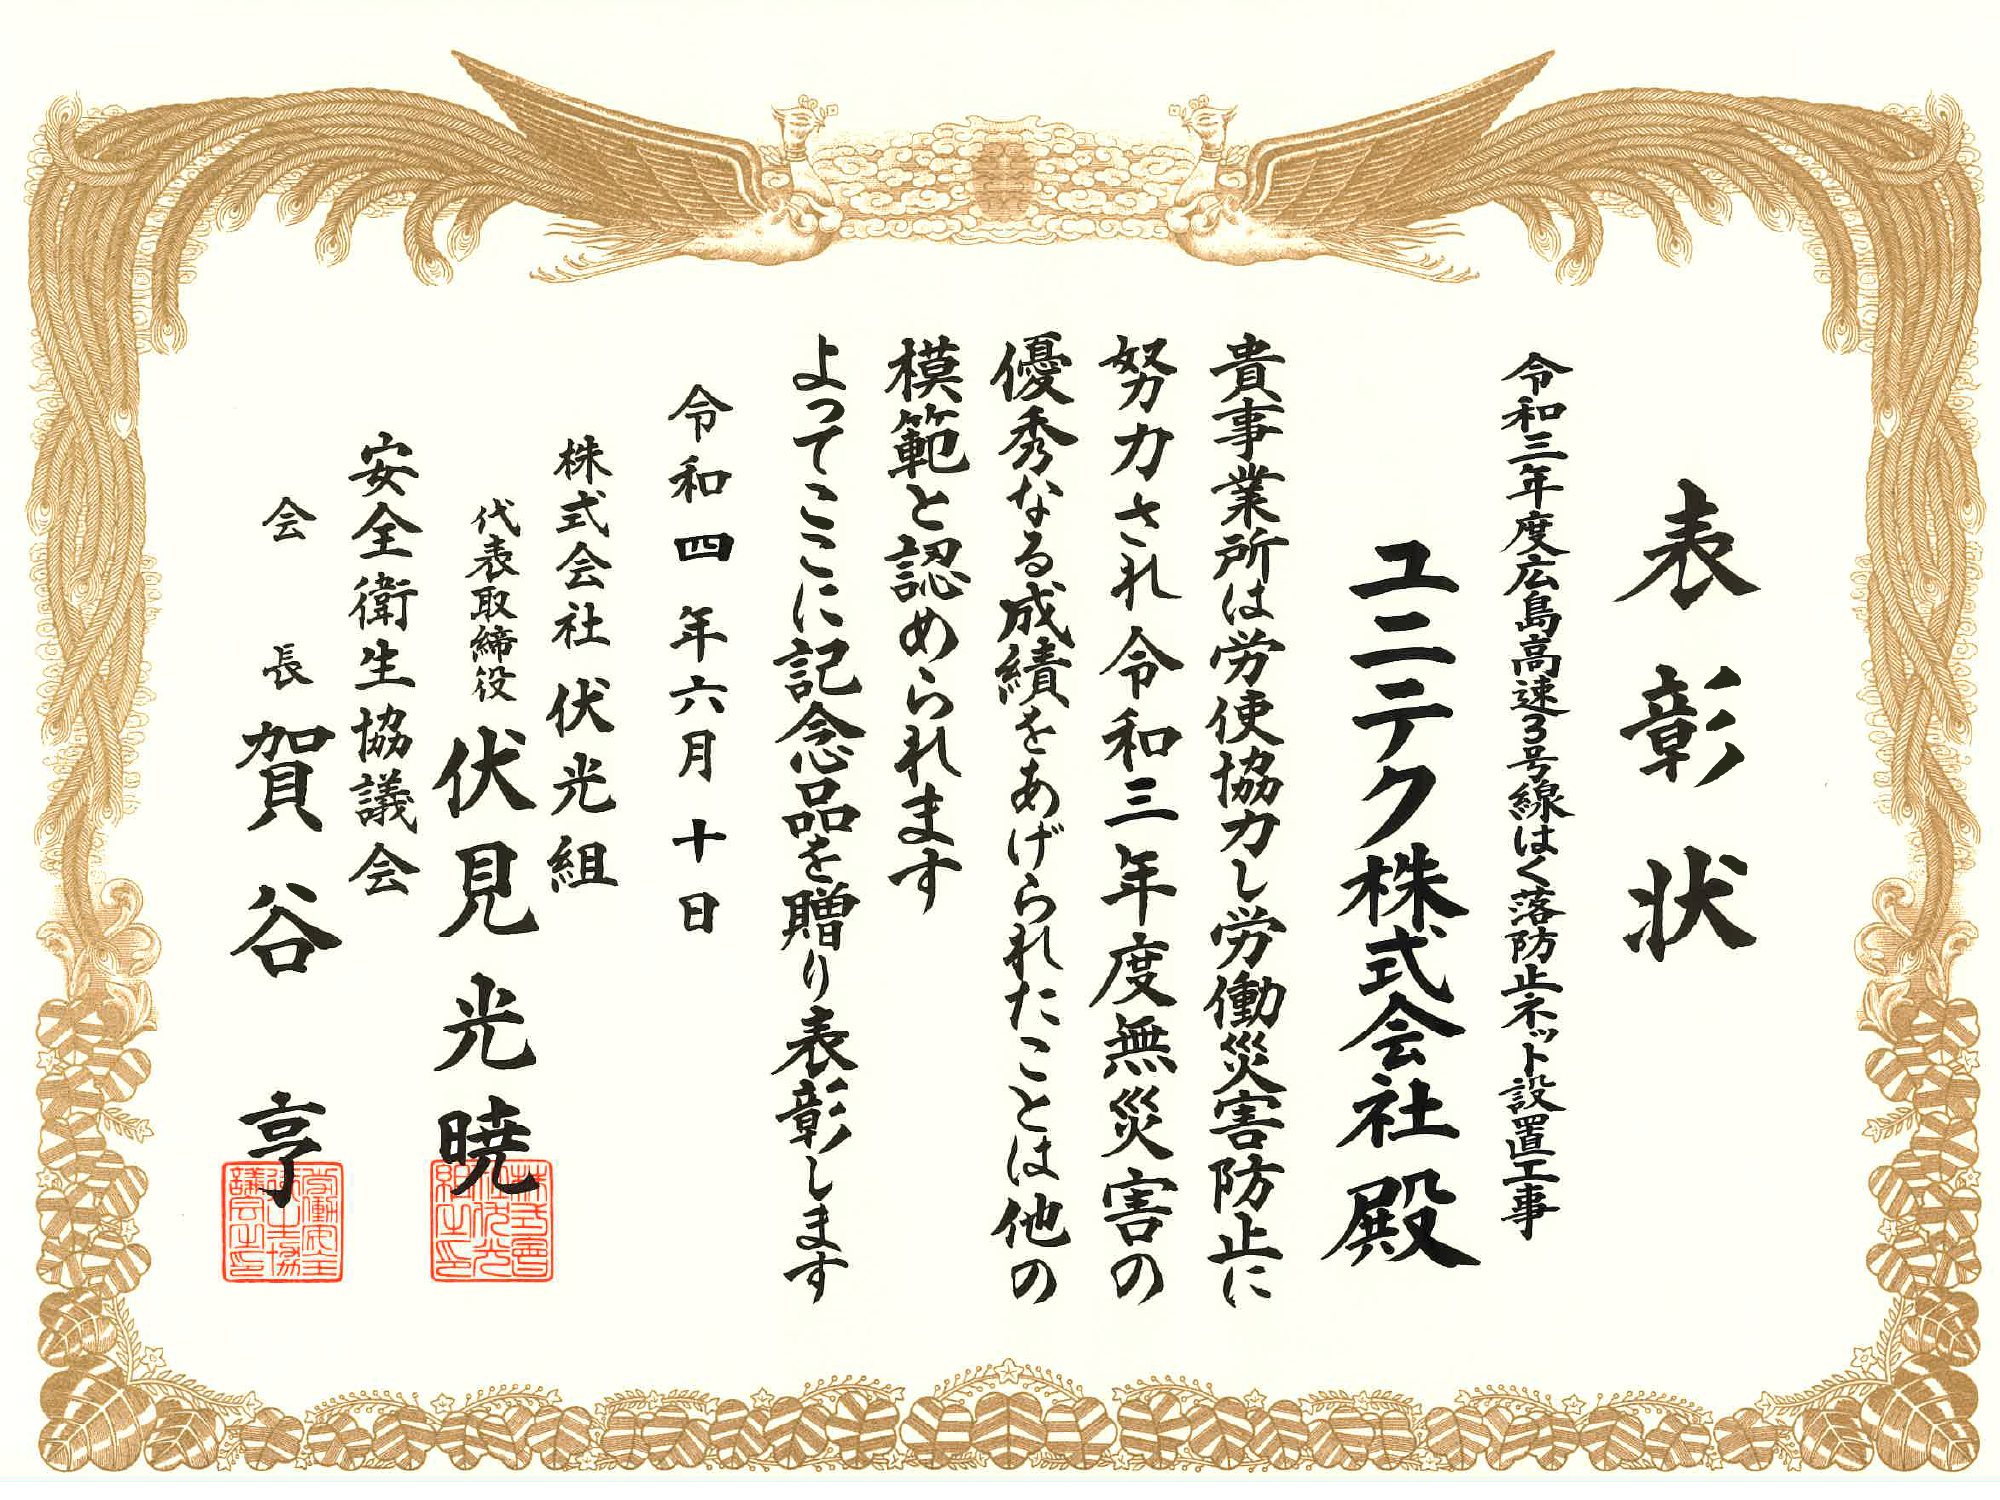 表彰状
令和三年度広島高速3号線はく落防止ネット設置工事
ユニテク株式会社殿
貴事業所は労使協力し労働災害防止に
努力され令和三年度無災害の
優秀なる成績をあげられたことは他の
模範と認められます
よってここに記念品を贈り表彰します
令和四年六月十日
株式会社伏光組
代表取締役 伏見光暁
安全衛生協議会
会長 賀谷亨